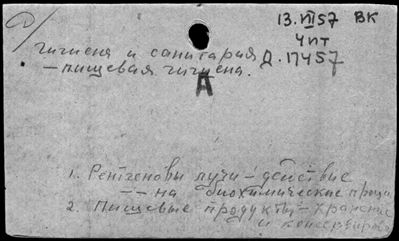 Д/
13.VII57 ВК
4 пт
гигиена и санитария Д.17457
— пищевая гигиена.
А
1. Рентгеновы лучи - действие
-- на биохимические проц
2. Пищевые продукты - хранение
и консервиров